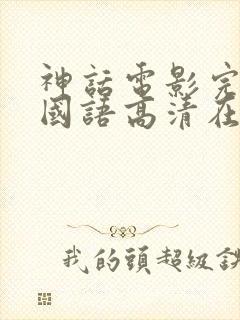 神話電影完
國語高清在
我的頭超級